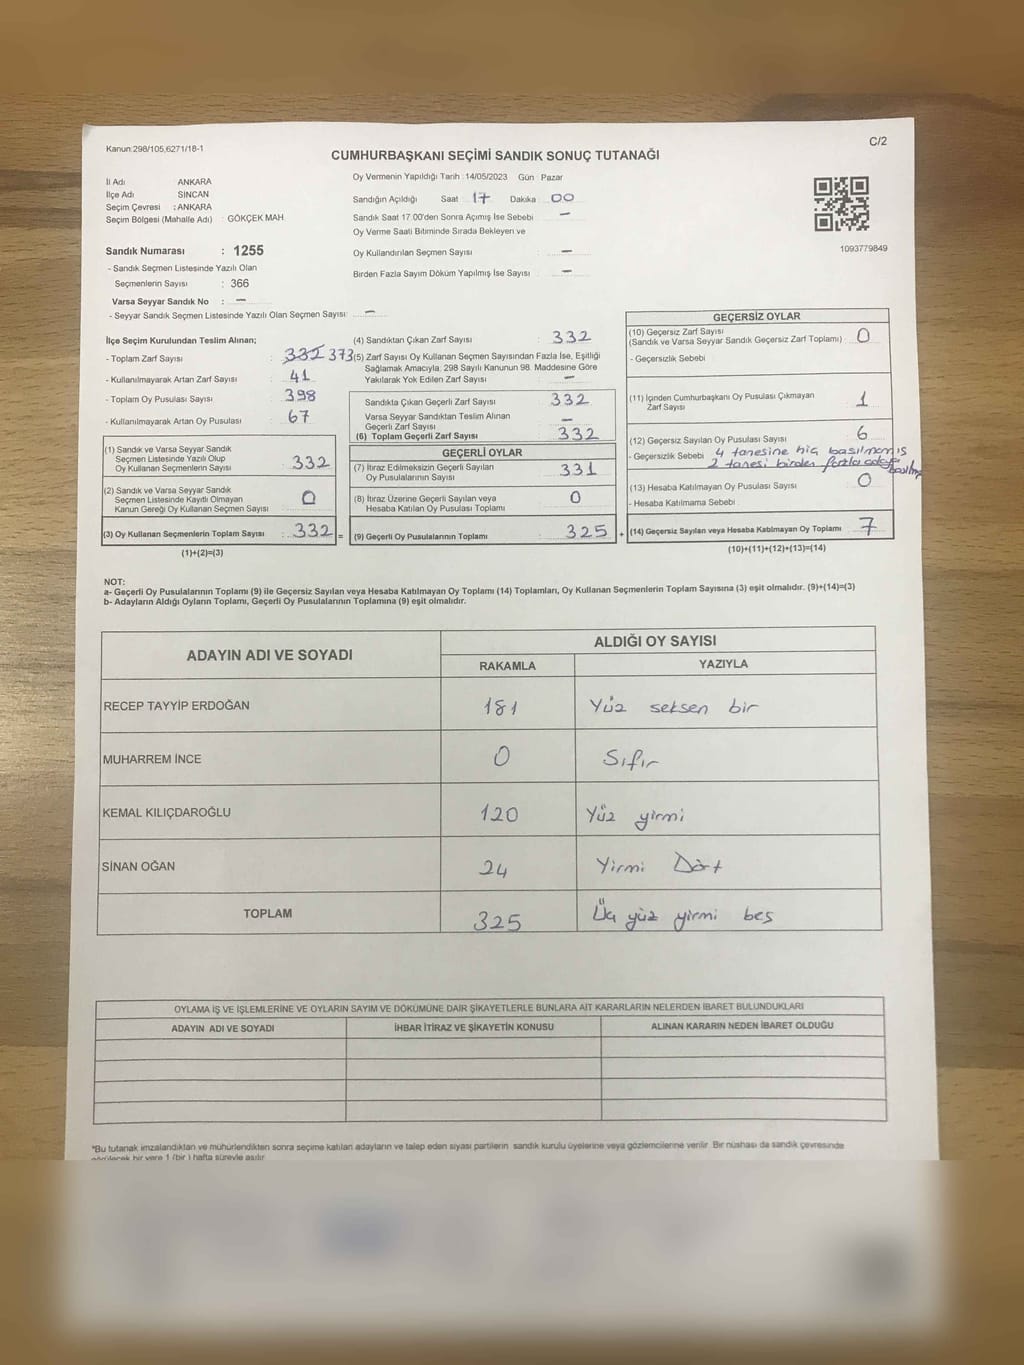 Kanun:298/105,6271/18-1
C/2
CUMHURBAŞKANI SEÇİMİ SANDIK SONUÇ TUTANAĞI
İl Adı : ANKARA
İlçe Adı : SİNCAN
Seçim Çevresi : ANKARA
Seçim Bölgesi (Mahalle Adı) : GÖKÇEK MAH.
Sandık Numarası : 1255
- Sandık Seçmen Listesinde Yazılı Olan
Seçmenlerin Sayısı : 366
Varsa Seyyar Sandık No : —
- Seyyar Sandık Seçmen Listesinde Yazılı Olan Seçmen Sayısı: —
Oy Vermenin Yapıldığı Tarih :14/05/2023 Gün : Pazar
Sandığın Açıldığı Saat 17 Dakika 00
Sandık Saat 17.00'den Sonra Açımış İse Sebebi : —
Oy Verme Saati Bitiminde Sırada Bekleyen ve
Oy Kullandırılan Seçmen Sayısı : —
Birden Fazla Sayım Döküm Yapılmış İse Sayısı : —
1093779849
İlçe Seçim Kurulundan Teslim Alınan;
- Toplam Zarf Sayısı : 332 373
- Kullanılmayarak Artan Zarf Sayısı : 41
- Toplam Oy Pusulası Sayısı : 398
- Kullanılmayarak Artan Oy Pusulası : 67
(1) Sandık ve Varsa Seyyar Sandık
Seçmen Listesinde Yazılı Olup
Oy Kullanan Seçmenlerin Sayısı : 332
(2) Sandık ve Varsa Seyyar Sandık
Seçmen Listesinde Kayıtlı Olmayan
Kanun Gereği Oy Kullanan Seçmen Sayısı : 0
(3) Oy Kullanan Seçmenlerin Toplam Sayısı : 332 =
(1)+(2)=(3)
(4) Sandıktan Çıkan Zarf Sayısı : 332
(5) Zarf Sayısı Oy Kullanan Seçmen Sayısından Fazla İse, Eşitliği
Sağlamak Amacıyla, 298 Sayılı Kanunun 98. Maddesine Göre
Yakılarak Yok Edilen Zarf Sayısı : —
Sandıkta Çıkan Geçerli Zarf Sayısı : 332
Varsa Seyyar Sandıktan Teslim Alınan
Geçerli Zarf Sayısı : —
(6) Toplam Geçerli Zarf Sayısı : 332
GEÇERLİ OYLAR
(7) İtiraz Edilmeksizin Geçerli Sayılan
Oy Pusulalarının Sayısı : 331
(8) İtiraz Üzerine Geçerli Sayılan veya
Hesaba Katılan Oy Pusulası Toplamı : 0
(9) Geçerli Oy Pusulalarının Toplamı : 325 +
GEÇERSİZ OYLAR
(10) Geçersiz Zarf Sayısı
(Sandık ve Varsa Seyyar Sandık Geçersiz Zarf Toplamı) : 0
- Geçersizlik Sebebi
(11) İçinden Cumhurbaşkanı Oy Pusulası Çıkmayan
Zarf Sayısı : 1
(12) Geçersiz Sayılan Oy Pusulası Sayısı : 6
- Geçersizlik Sebebi 4 tanesine hiç basılmamış
2 tanesi birden fazla adaya basılmış
(13) Hesaba Katılmayan Oy Pusulası Sayısı : 0
- Hesaba Katılmama Sebebi
(14) Geçersiz Sayılan veya Hesaba Katılmayan Oy Toplamı : 7
(10)+(11)+(12)+(13)=(14)
NOT:
a- Geçerli Oy Pusulalarının Toplamı (9) ile Geçersiz Sayılan veya Hesaba Katılmayan Oy Toplamı (14) Toplamları, Oy Kullanan Seçmenlerin Toplam Sayısına (3) eşit olmalıdır. (9)+(14)=(3)
b- Adayların Aldığı Oyların Toplamı, Geçerli Oy Pusulalarının Toplamına (9) eşit olmalıdır.
ADAYIN ADI VE SOYADI
ALDIĞI OY SAYISI
RAKAMLA YAZIYLA
RECEP TAYYİP ERDOĞAN 181 Yüz seksen bir
MUHARREM İNCE 0 Sıfır
KEMAL KILIÇDAROĞLU 120 Yüz yirmi
SİNAN OĞAN 24 Yirmi Dört
TOPLAM 325 Üç yüz yirmi beş
OYLAMA İŞ VE İŞLEMLERİNE VE OYLARIN SAYIM VE DÖKÜMÜNE DAİR ŞİKAYETLERLE BUNLARA AİT KARARLARIN NELERDEN İBARET BULUNDUKLARI
ADAYIN ADI VE SOYADI İHBAR İTİRAZ VE ŞİKAYETİN KONUSU ALINAN KARARIN NEDEN İBARET OLDUĞU
*Bu tutanak imzalandıktan ve mühürlendikten sonra seçime katılan adayların ve talep eden siyasi partilerin sandık kurulu üyelerine veya gözlemcilerine verilir. Bir nüshası da sandık çevresinde
görülecek bir yere 1 (bir ) hafta süreyle asılır.